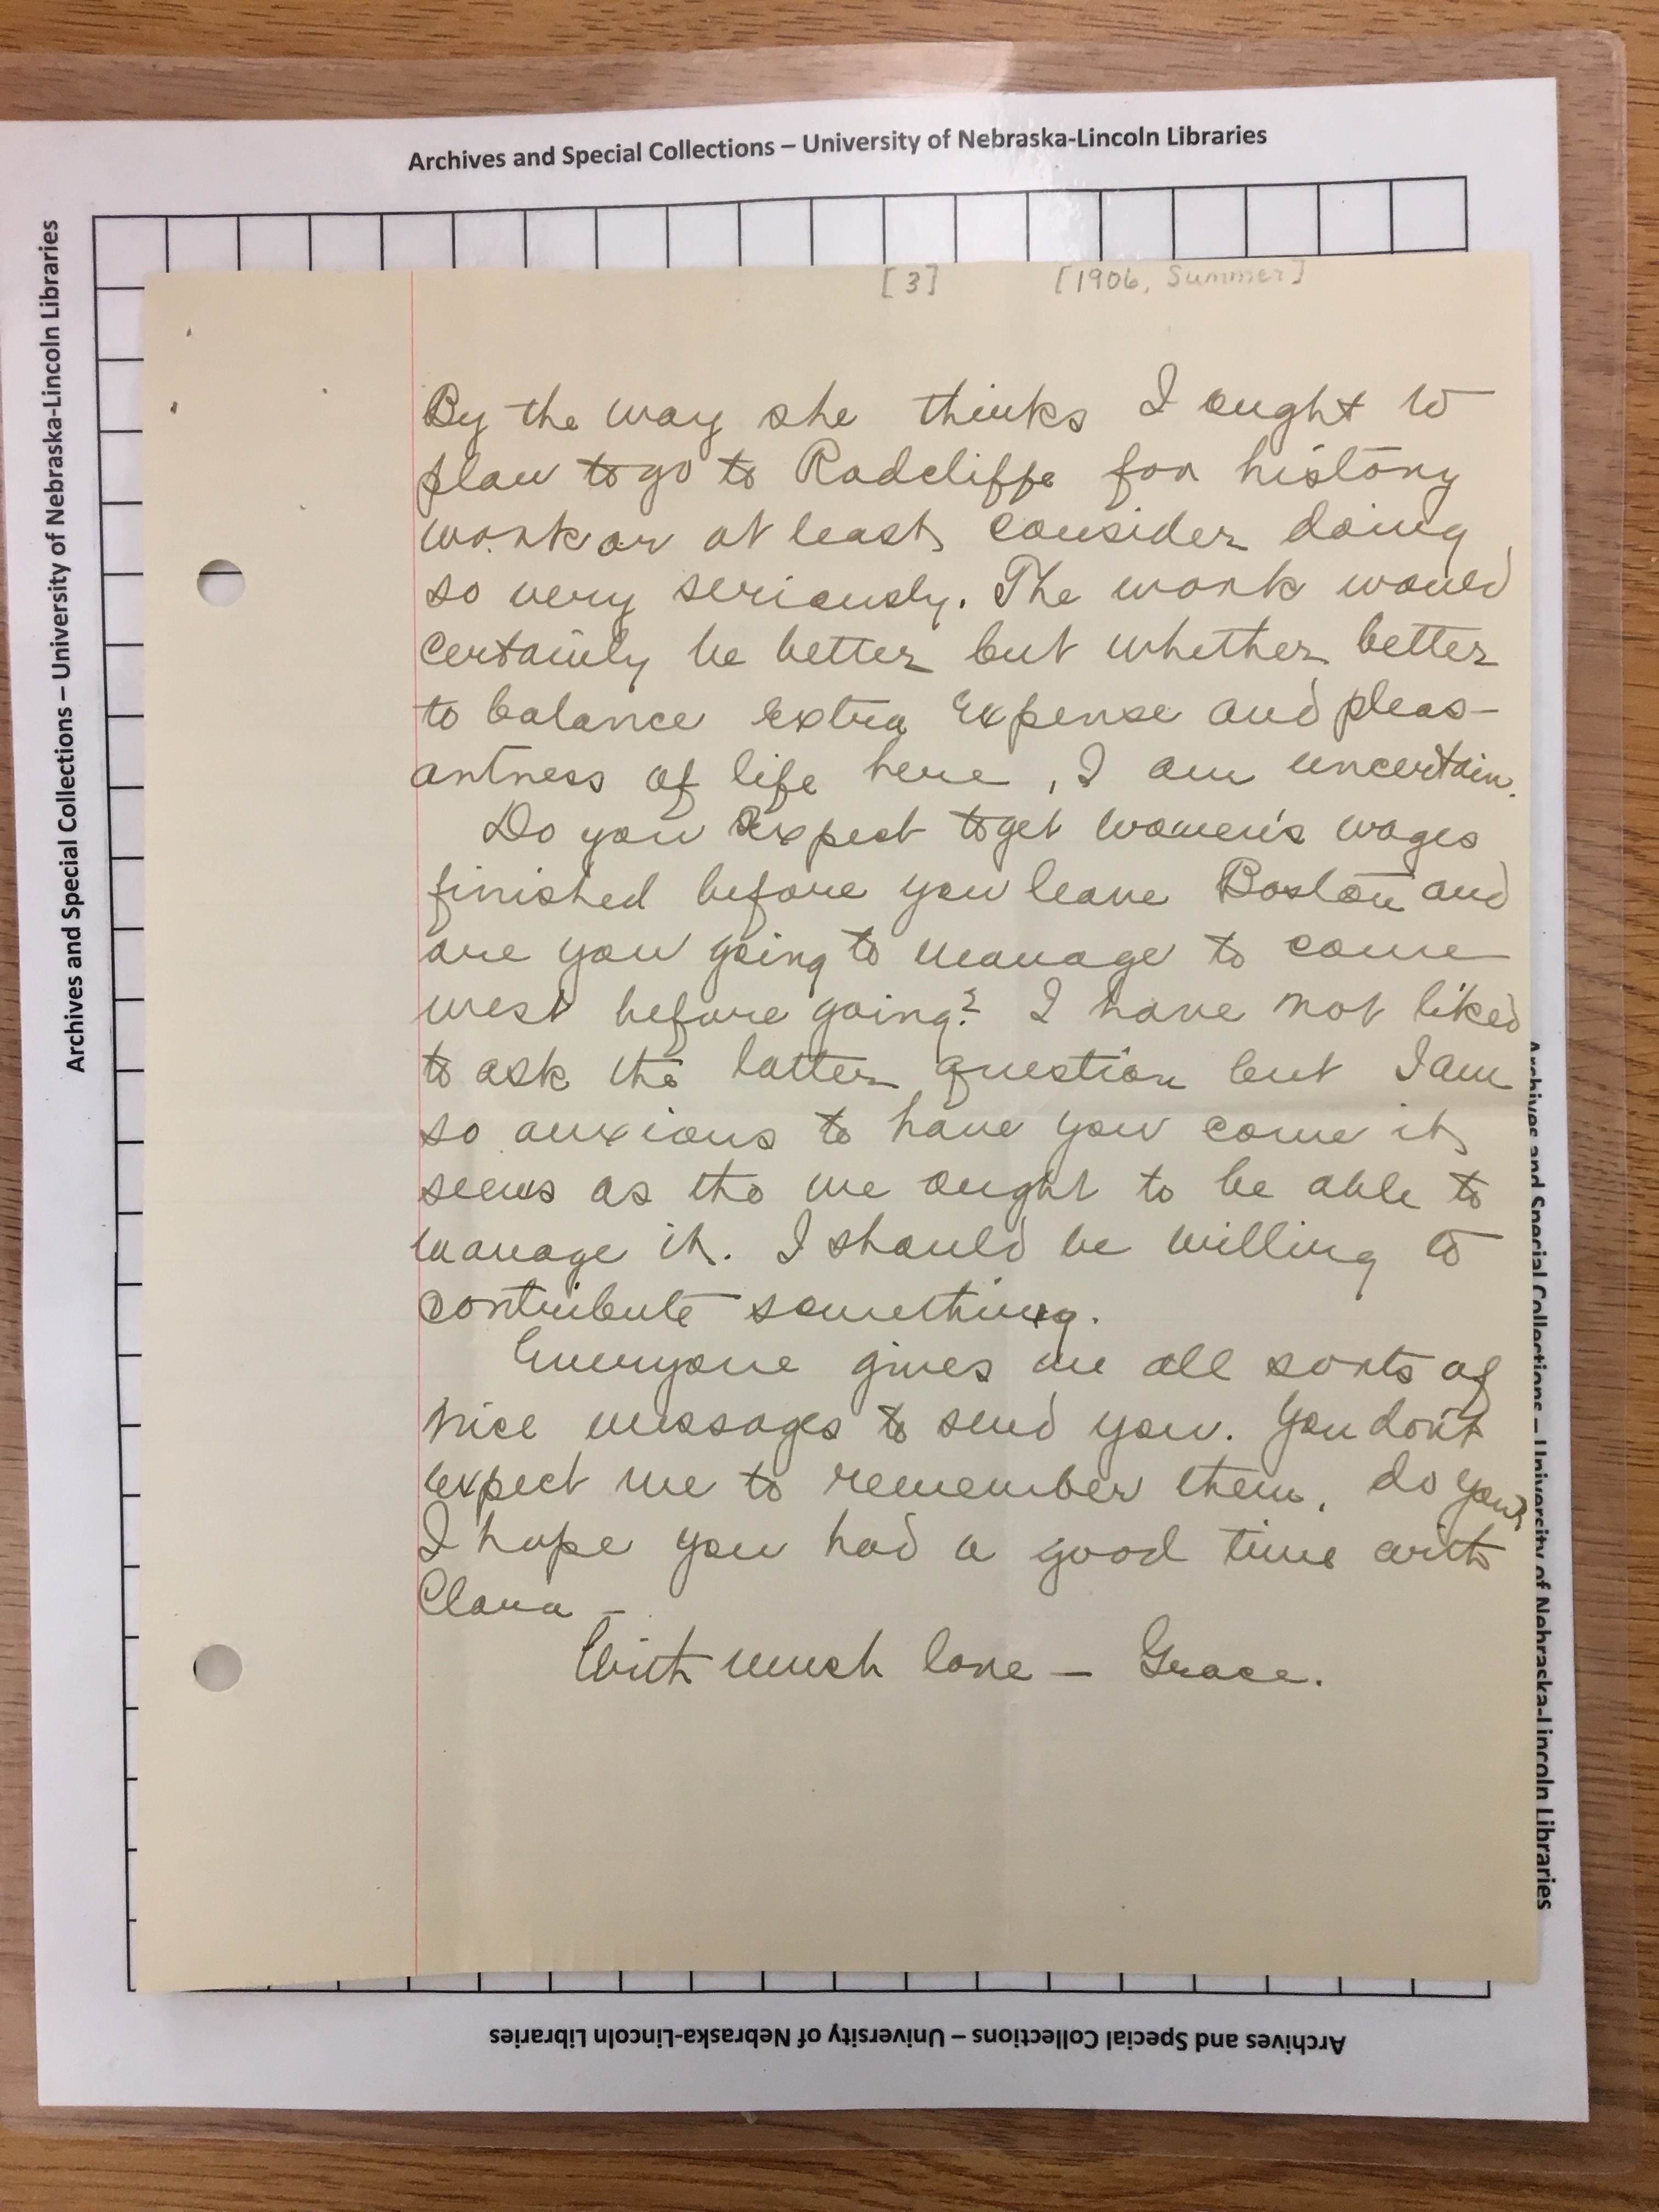 Archives and Special Collections – University of Nebraska-Lincoln Libraries
Archives and Special Collections – University of Nebraska-Lincoln Libraries
[3] [1906, Summer]
By the way she thinks I ought to
plan to go to Radcliffe for history
work or at least consider doing
so very seriously. The work would
certainly be better but whether better
to balance extra expense and pleas-
antness of life here, I am uncertain.
Do you expect to get women's wages
finished before you leave Boston and
are you going to manage to come
west before going? I have not liked
to ask the latter question but I am
so anxious to have you come it
seems as tho we ought to be able to
manage it. I should be willing to
contribute something.
Everyone gives me all sorts of
nice messages to send you. You don't
expect me to remember them, do you?
I hope you had a good time with
Clara –
With much love – Grace.
Archives and Special Collections – University of Nebraska-Lincoln Libraries
Archives and Special Collections – University of Nebraska-Lincoln Libraries